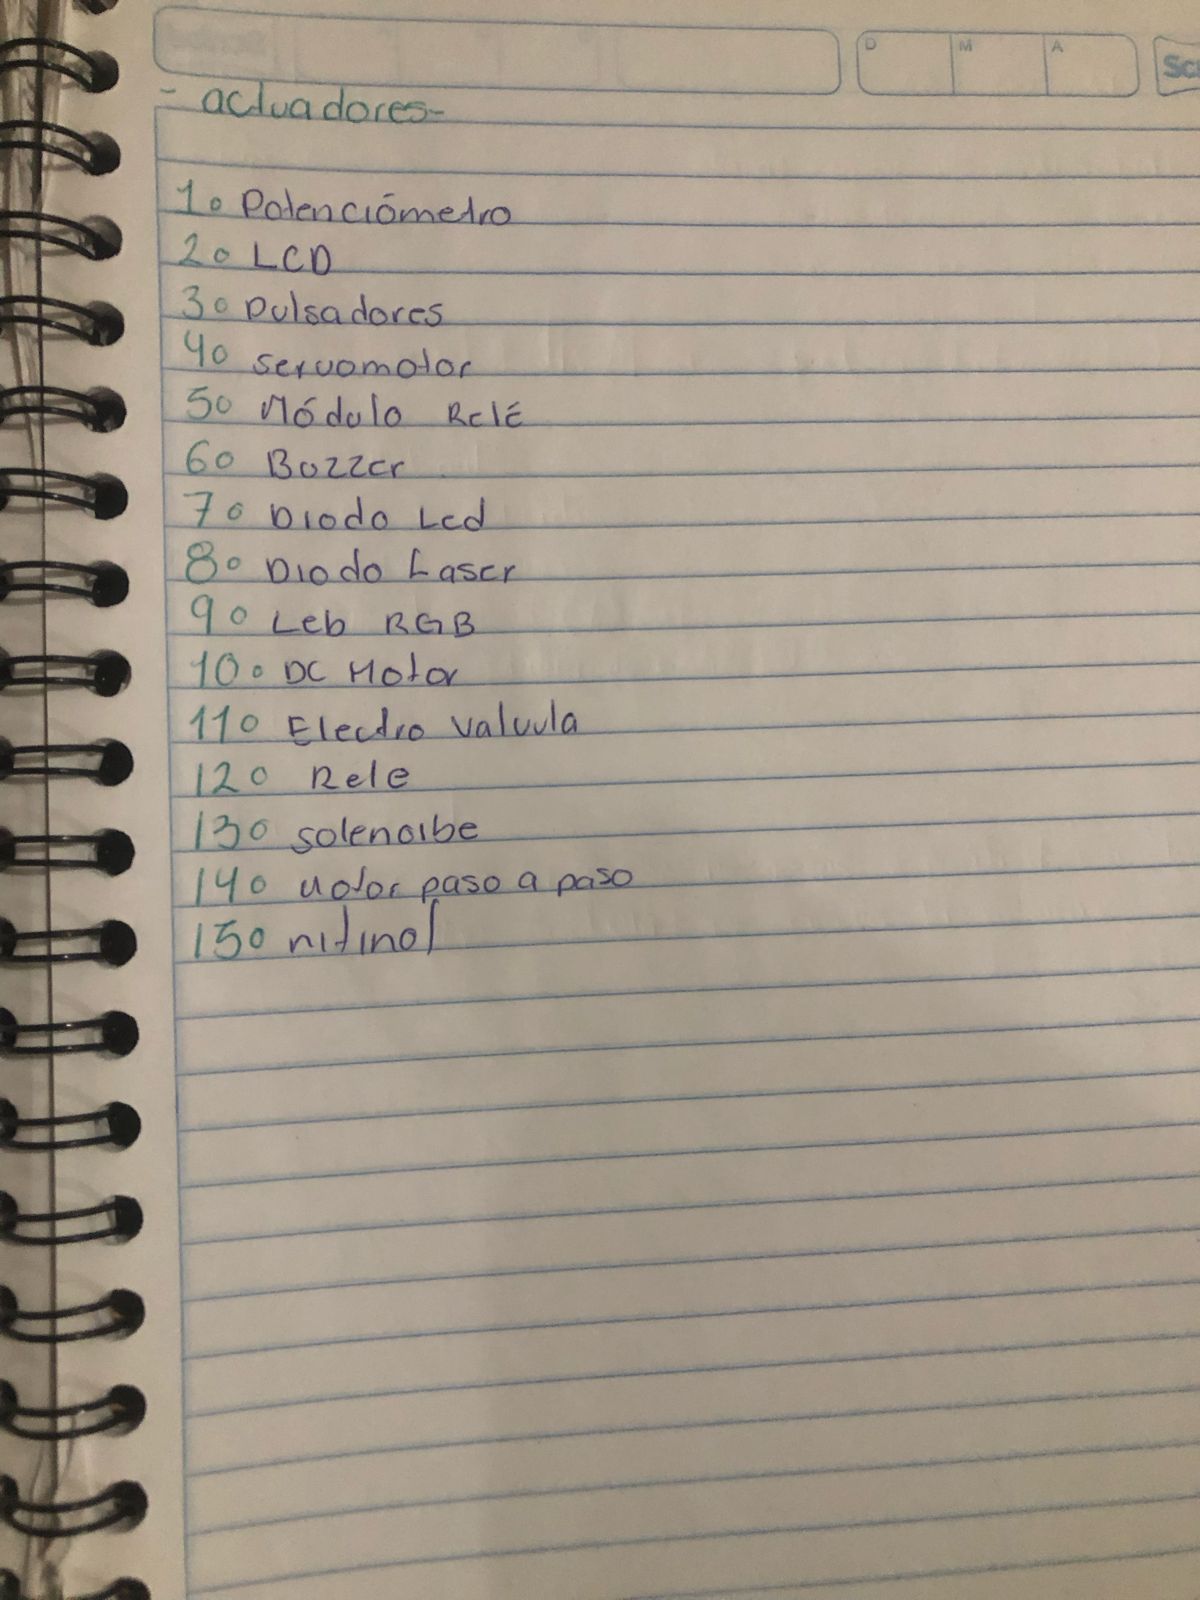 D M A
- actuadores -
1. Potenciómetro
2. LCD
3. Pulsadores
4. Servomotor
5. Módulo Relé
6. Buzzer
7. Diodo Led
8. Diodo Laser
9. Leb RGB
10. DC Motor
11. Electro valvula
12. Rele
13. solenoibe
14. Motor paso a paso
15. nitinol